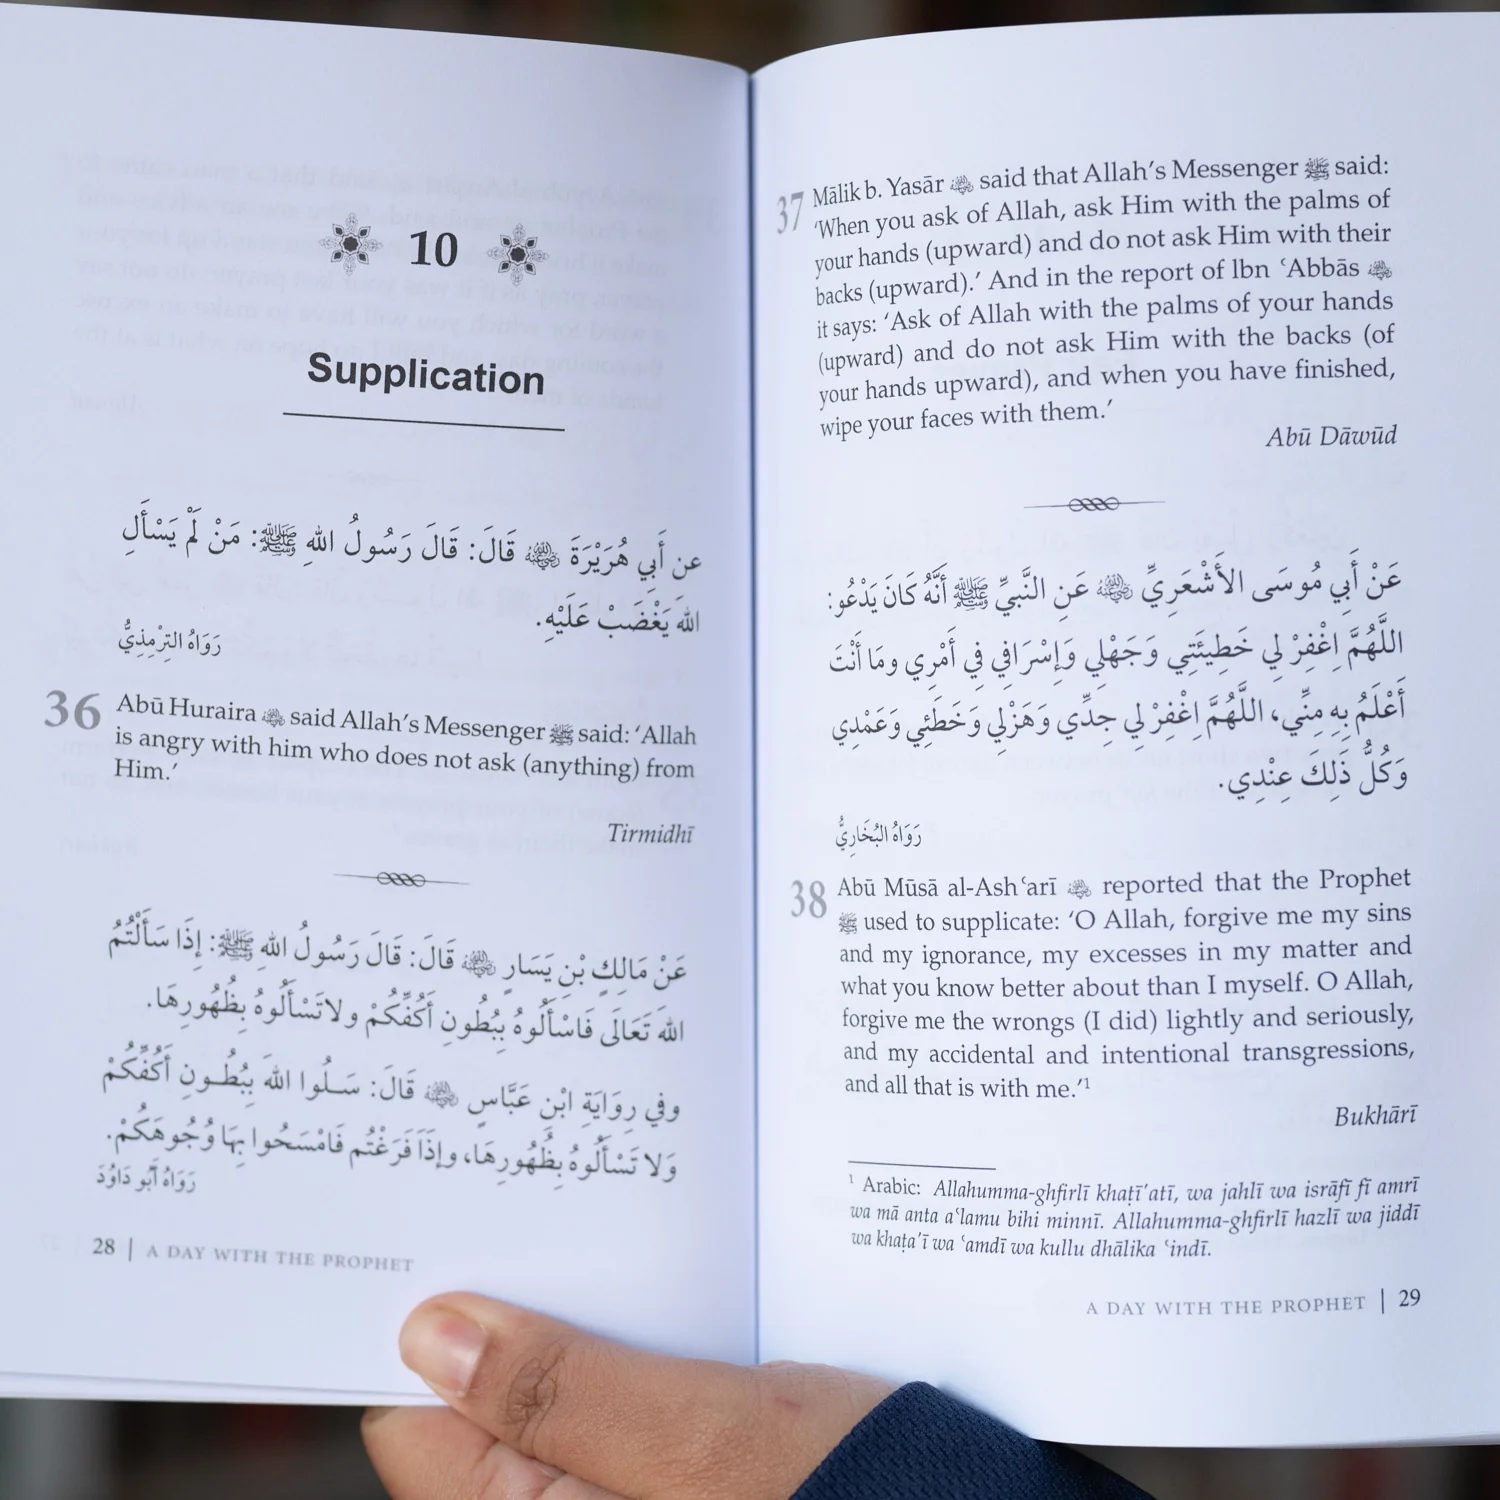 10
Supplication
عن أَبِي هُرَيْرَةَ ﷺ قَالَ: قَالَ رَسُولُ اللهِ ﷺ: مَنْ لَمْ يَسْأَلِ
اللهَ يَغْضَبْ عَلَيْهِ.
رَوَاهُ التِرْمِذِيُّ
36 Abū Huraira said Allah's Messenger ﷺ said: 'Allah
is angry with him who does not ask (anything) from
Him.'
Tirmidhī
عَنْ مَالِكِ بْنِ يَسَارٍ قَالَ: قَالَ رَسُولُ اللهِ ﷺ: إِذَا سَأَلْتُمُ
اللهَ تَعَالَى فَاسْأَلُوهُ بِبُطُونِ أَكُفِّكُمْ ولاتَسْأَلُوهُ بِظُهُورِهَا.
وفي رِوَايَةِ ابْنِ عَبَّاسٍ قَالَ: سَلُوا اللهَ بِبُطُونِ أَكُفِّكُمْ
وَلا تَسْأَلُوهُ بِظُهُورِهَا، وإِذَا فَرَغْتُم فَامْسَحُوا بِهَا وُجُوهَكُمْ.
رَوَاهُ أَبُو دَاوُدَ
28 | A DAY WITH THE PROPHET
37 Mālik b. Yasār said that Allah's Messenger ﷺ said:
'When you ask of Allah, ask Him with the palms of
your hands (upward) and do not ask Him with their
backs (upward).' And in the report of Ibn ʿAbbās
it says: 'Ask of Allah with the palms of your hands
(upward) and do not ask Him with the backs (of
your hands upward), and when you have finished,
wipe your faces with them.'
Abū Dāwūd
عَنْ أَبِي مُوسَى الأَشْعَرِيِّ عَنِ النَّبِيِّ ﷺ أَنَّهُ كَانَ يَدْعُو:
اللَّهُمَّ اِغْفِرْ لِي خَطِيئَتِي وَجَهْلِي وَإِسْرَافِي فِي أَمْرِي ومَا أَنْتَ
أَعْلَمُ بِهِ مِنِّي، اللَّهُمَّ اِغْفِرْ لِي جِدِّي وَهَزْلِي وَخَطَئِي وَعَمْدِي
وَكُلُّ ذَلِكَ عِنْدِي.
رَوَاهُ البُخَارِيُّ
38 Abū Mūsā al-Ashʿarī reported that the Prophet
ﷺ used to supplicate: 'O Allah, forgive me my sins
and my ignorance, my excesses in my matter and
what you know better about than I myself. O Allah,
forgive me the wrongs (I did) lightly and seriously,
and my accidental and intentional transgressions,
and all that is with me.'1
Bukhārī
1 Arabic: Allahumma-ghfirlī khaṭī'atī, wa jahlī wa isrāfī fī amrī
wa mā anta aʿlamu bihi minnī. Allahumma-ghfirlī hazlī wa jiddī
wa khaṭa'ī wa ʿamdī wa kullu dhālika ʿindī.
A DAY WITH THE PROPHET | 29